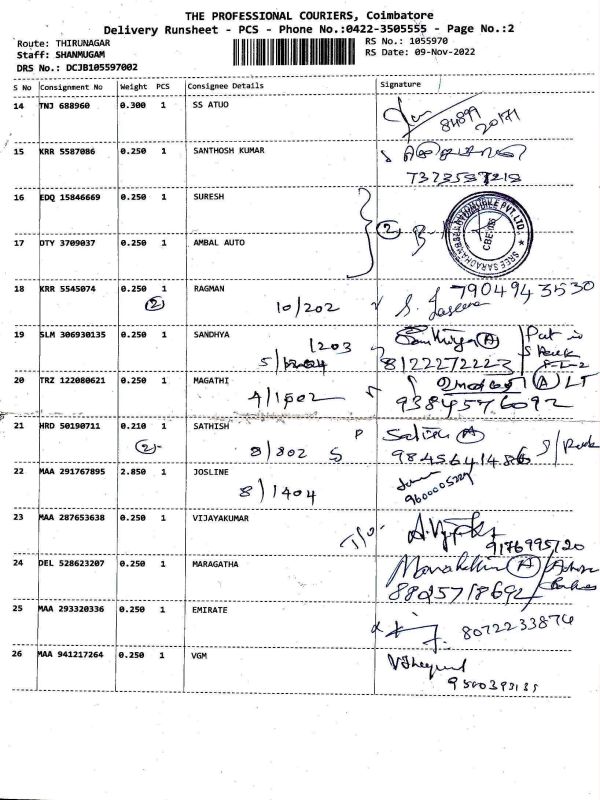 THE PROFESSIONAL COURIERS, Coimbatore
Delivery Runsheet - PCS - Phone No.:0422-3505555 - Page No.:2
Route: THIRUNAGAR
Staff: SHANMUGAM
DRS No.: DCJB105597002
RS No.: 1055970
RS Date: 09-Nov-2022
S No Consignment No Weight PCS Consignee Details Signature
14 TNJ 688960 0.300 1 SS ATUO
15 KRR 5587086 0.250 1 SANTHOSH KUMAR
16 EDQ 15846669 0.250 1 SURESH
17 DTY 3709037 0.250 1 AMBAL AUTO
2
CBE
18 KRR 5545074 0.250 1 RAGMAN 7904943530
2 10/202
19 SLM 306930135 0.250 1 SANDHYA
1203
5/ 8122272223
20 TRZ 122080621 0.250 1 MAGATHI A LT
4/1002 9384576092
21 HRD 50190711 0.210 1 SATHISH P A
2 8/802 S
22 MAA 291767895 2.850 1 JOSLINE
8/1404
23 MAA 287653638 0.250 1 VIJAYAKUMAR
9176995120
24 DEL 528623207 0.250 1 MARAGATHA A
8825718692
25 MAA 293320336 0.250 1 EMIRATE 8072233874
26 MAA 941217264 0.250 1 VGM